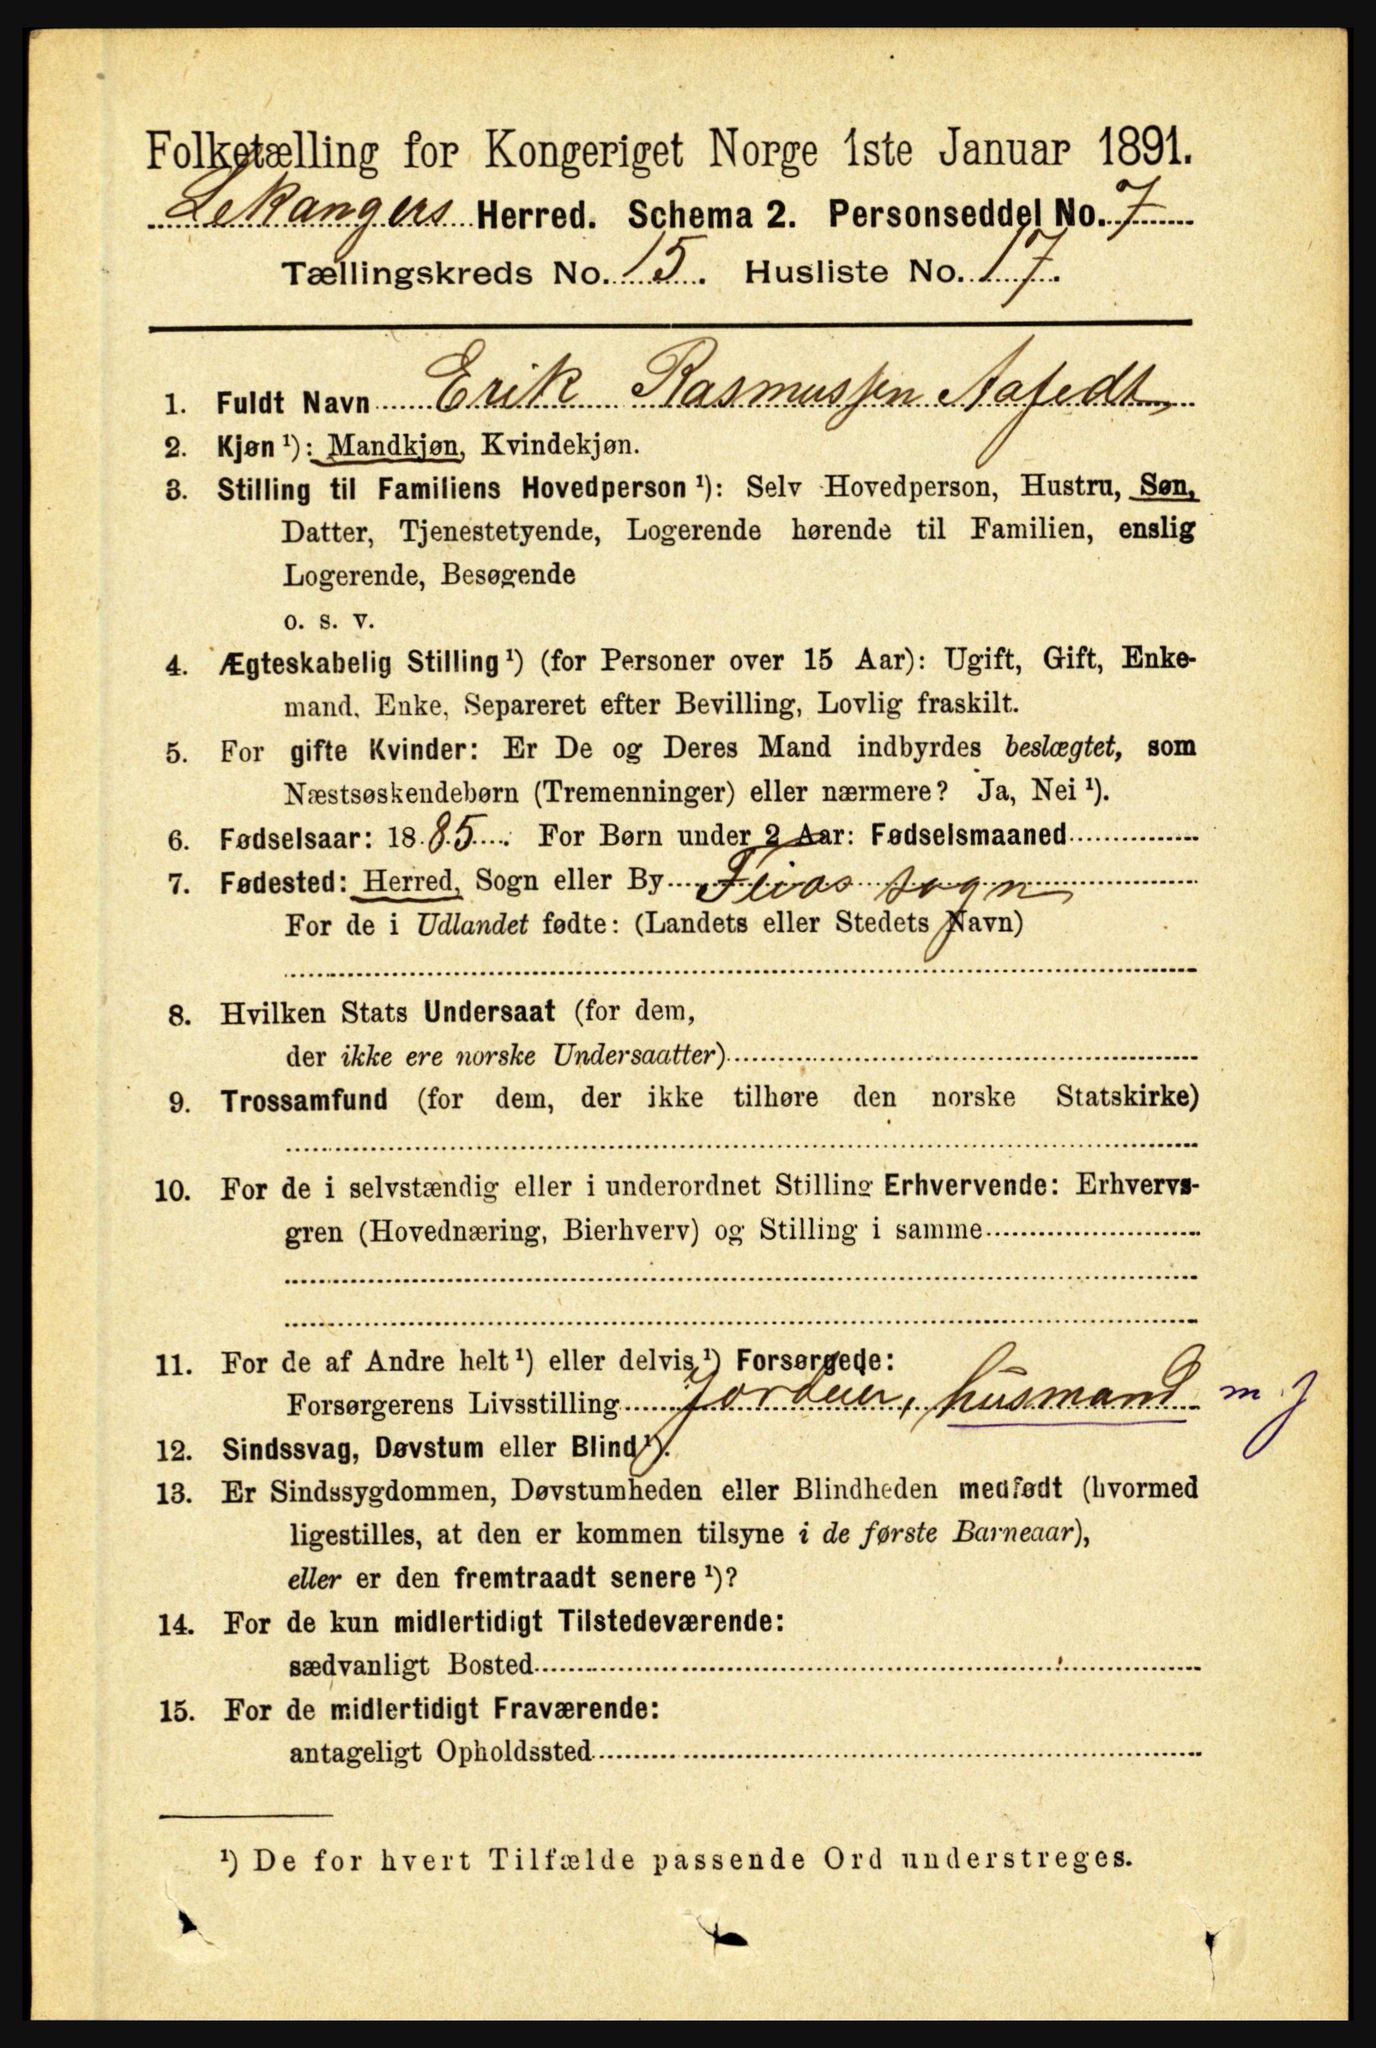 Folketælling for Kongeriget Norge 1ste Januar 1891.
Lekangers Herred. Schema 2. Personseddel No. 7
Tællingskreds No. 15. Husliste No. 17.
1. Fuldt Navn Erik Rasmussen Aafedt
2. Kjøn ¹): Mandkjøn, Kvindekjøn.
3. Stilling til Familiens Hovedperson ¹): Selv Hovedperson, Hustru, Søn,
Datter, Tjenestetyende, Logerende hørende til Familien, enslig
Logerende, Besøgende
o. s. v.
4. Ægteskabelig Stilling ¹) (for Personer over 15 Aar): Ugift, Gift, Enke-
mand, Enke, Separeret efter Bevilling, Lovlig fraskilt.
5. For gifte Kvinder: Er De og Deres Mand indbyrdes beslægtet, som
Næstsøskendebørn (Tremenninger) eller nærmere? Ja, Nei ¹).
6. Fødselsaar: 1885. For Børn under 2 Aar: Fødselsmaaned
7. Fødested: Herred, Sogn eller By Feios sogn
For de i Udlandet fødte: (Landets eller Stedets Navn)
8. Hvilken Stats Undersaat (for dem,
der ikke ere norske Undersaatter)
9. Trossamfund (for dem, der ikke tilhøre den norske Statskirke)
10. For de i selvstændig eller i underordnet Stilling Erhvervende: Erhvervs-
gren (Hovednæring, Bierhverv) og Stilling i samme
11. For de af Andre helt ¹) eller delvis ¹) Forsørgede:
Forsørgerens Livsstilling Jordeier, husmand m j
12. Sindssvag, Døvstum eller Blind ¹).
13. Er Sindssygdommen, Døvstumheden eller Blindheden medfødt (hvormed
ligestilles, at den er kommen tilsyne i de første Barneaar),
eller er den fremtraadt senere ¹)?
14. For de kun midlertidigt Tilstedeværende:
sædvanligt Bosted
15. For de midlertidigt Fraværende:
antageligt Opholdssted
¹) De for hvert Tilfælde passende Ord understreges.